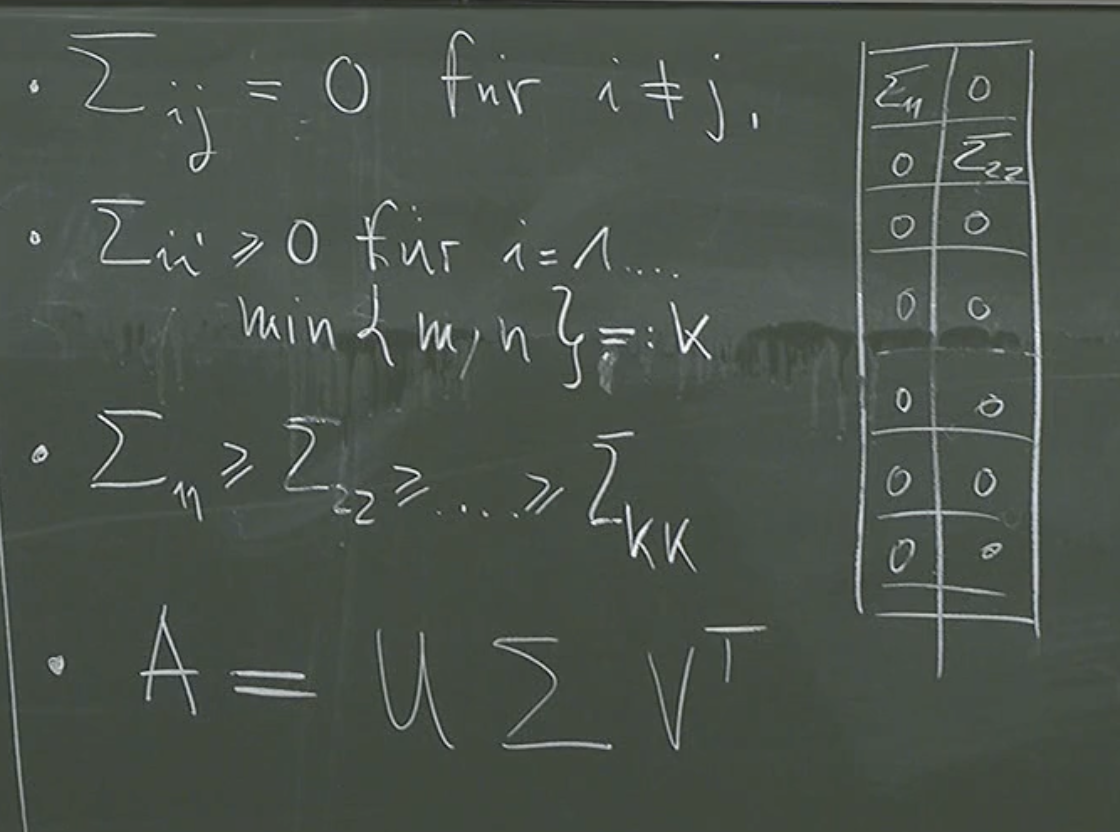 · Σij = 0 für i ≠ j,
· Σii ⩾ 0 für i = 1....
min{m,n} =: k
· Σ11 ⩾ Σ22 ⩾ .... ⩾ Σkk
· A = U Σ V^T
Σ11 0
0 Σ22
0 0
0 0
0 0
0 0
0 0